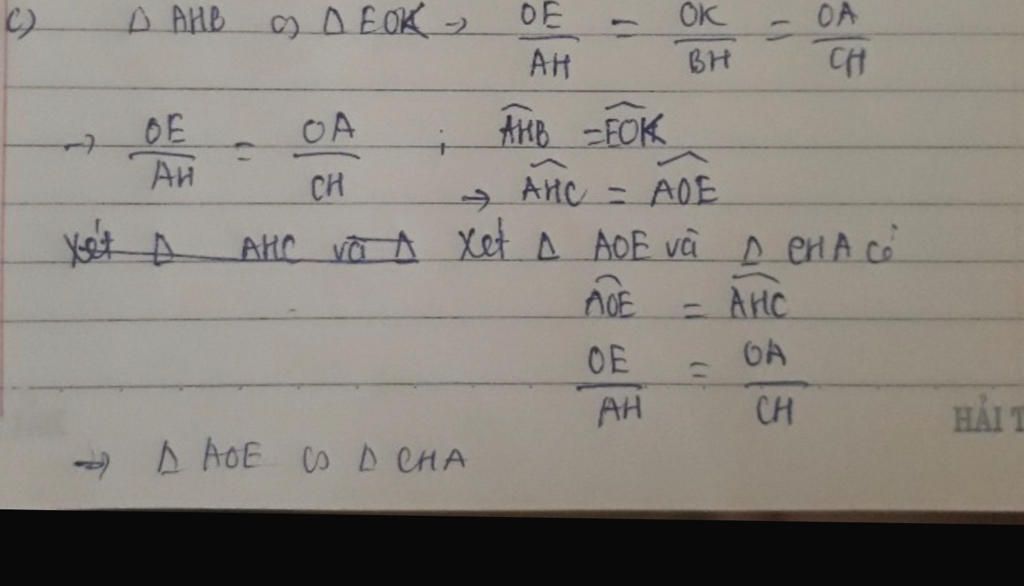 c) Δ AHB ∽ Δ EOK → OE/AH = OK/BH = OA/CH
→ OE/AH = OA/CH ; \widehat{AHB} = \widehat{EOK}
→ \widehat{AHC} = \widehat{AOE}
Xét Δ AHC và Δ Xét Δ AOE và Δ CHA có
\widehat{AOE} = \widehat{AHC}
OE/AH = OA/CH
HẢI T
→ Δ AOE ∽ Δ CHA